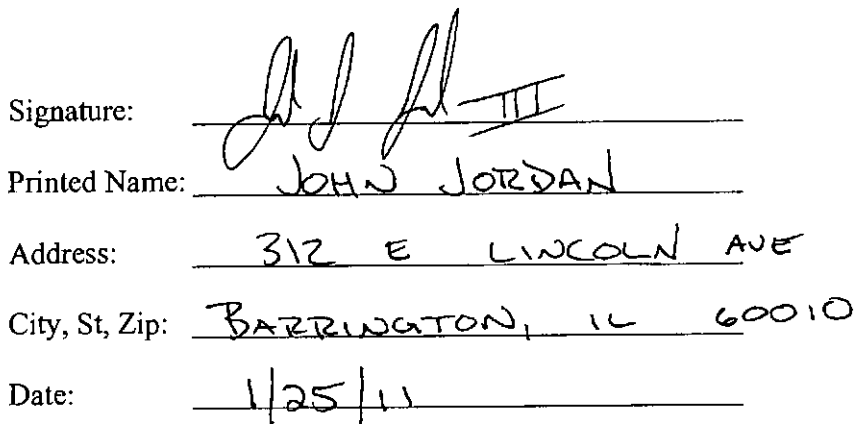 Signature: III
Printed Name: JOHN JORDAN
Address: 312 E LINCOLN AVE
City, St, Zip: BARRINGTON, IL 60010
Date: 1/25/11